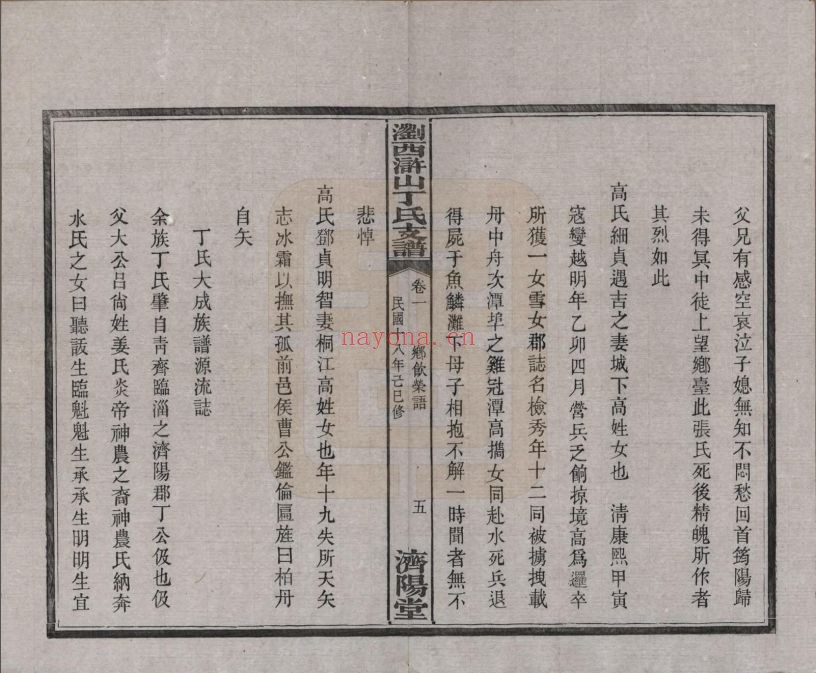 父兄有感空哀泣子媳無知不悶愁回首筠陽歸
未得冥中徒上望鄉臺此張氏死後精魄所作者
其烈如此
高氏細貞遇吉之妻城下高姓女也　清康熙甲寅
寇變越明年乙卯四月營兵乏餉掠境高為邏卒
所獲一女雪女郡誌名檢秀年十二同被擄拽載
舟中舟次潭埠之雞冠潭高攜女同赴水死兵退
得屍于魚鱗灘下母子相抱不解一時聞者無不
瀏西滸山丁氏支譜
卷一　鄉飲榮語
民國十八年己巳修
五
濟陽堂
悲悼
高氏鄧貞明智妻桐江高姓女也年十九失所天矢
志冰霜以撫其孤前邑侯曹公鑑倫區旌曰柏舟
自矢
丁氏大成族譜源流誌
余族丁氏肇自青齊臨淄之濟陽郡丁公伋也伋
父大公呂尙姓姜氏炎帝神農之裔神農氏納奔
水氏之女曰聽詙生臨魁魁生承承生明明生宜
naydna.cn